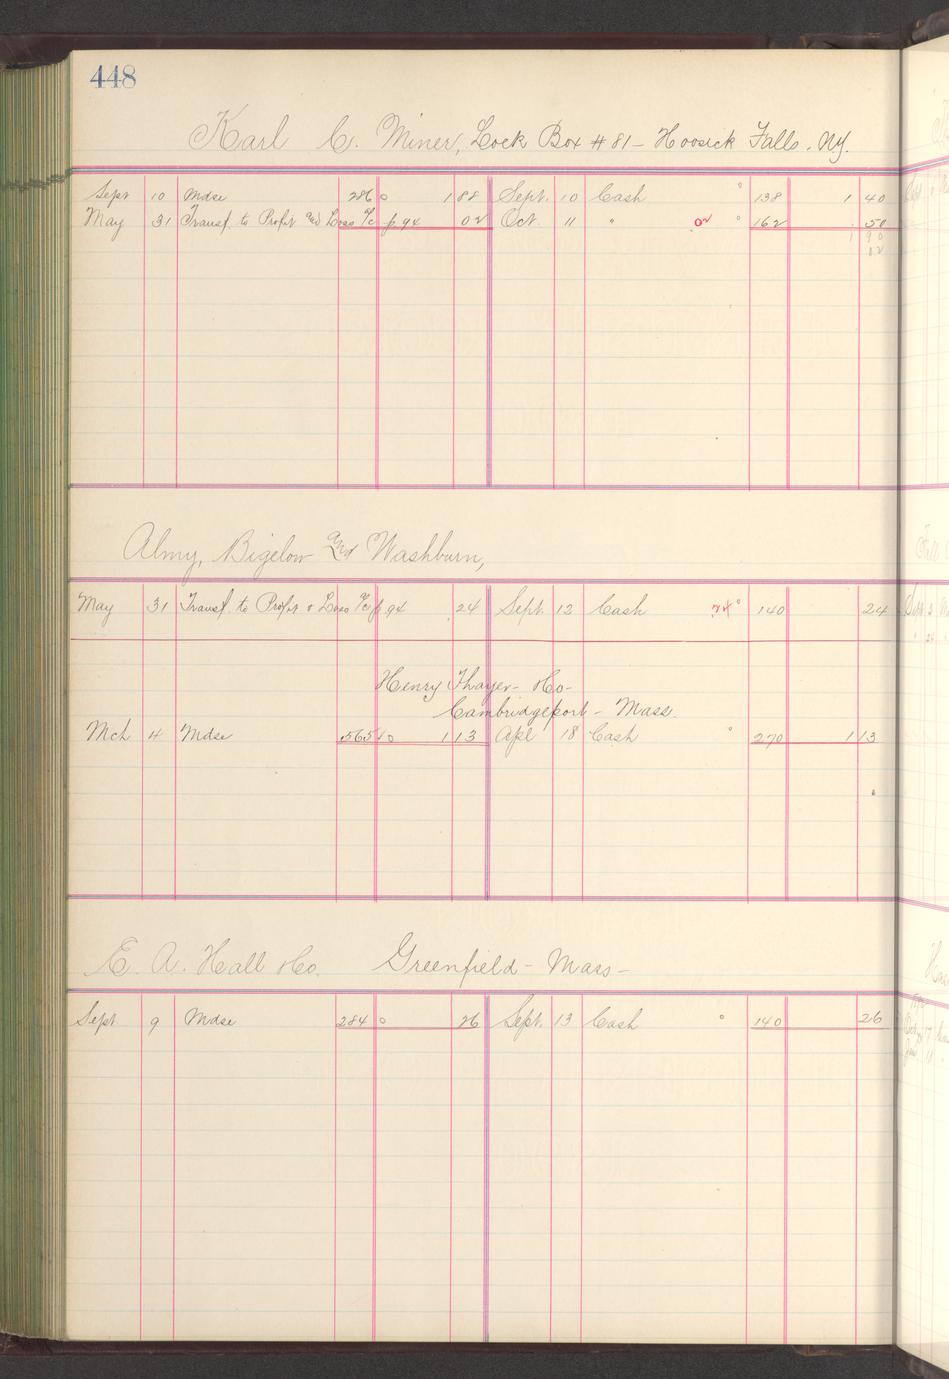 448
Karl C. Miner, Lock Box #81 - Hoosick Falls. N.Y.
Sept 10 Mdse 286 1 88 Sept. 10 Cash 138 1 40
May 31 Transf. to Profit and Loss a/c p. 94 02 Oct. 11 " 02 162 .50
1 90
12
Almy, Bigelow and Washburn,
May 31 Transf. to Profit & Loss a/c p 94 24 Sept. 13 Cash 24 140 24
Henry Thayer - & Co -
Cambridgeport - Mass.
Mch 4 Mdse 565 1 13 Apl 18 Cash 270 1 13
E. A. Hall & Co. Greenfield - Mass -
Sept. 9 Mdse 284 26 Sept. 13 Cash 140 26